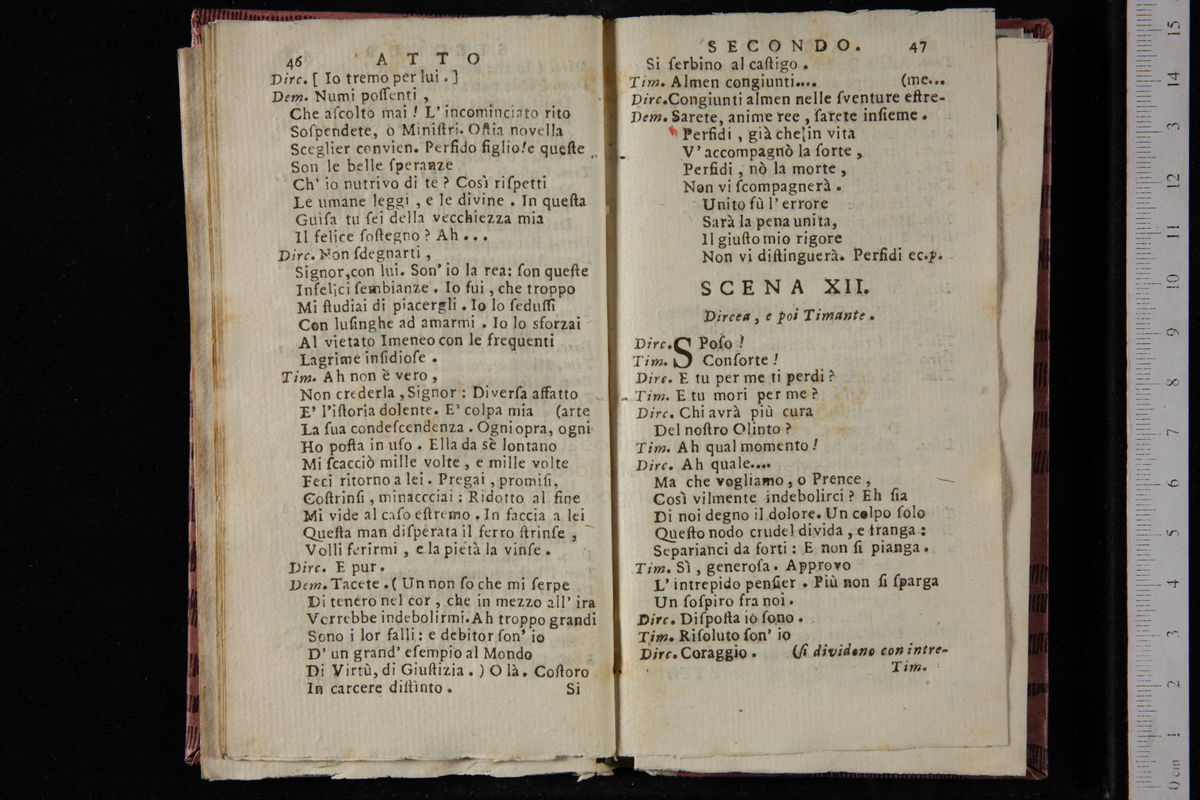 46 ATTO
Dirc. [ Io tremo per lui . ]
Dem. Numi poſſenti ,
Che aſcolto mai ! L' incominciato rito
Soſpendete, o Miniſtri. Oſtia novella
Sceglier convien. Perfido figlio! e queſte
Son le belle ſperanze
Ch' io nutrivo di te ? Così riſpetti
Le umane leggi , e le divine . In queſta
Guiſa tu ſei della vecchiezza mia
Il felice ſoſtegno ? Ah . . .
Dirc. Non ſdegnarti ,
Signor,con lui. Son' io la rea: ſon queſte
Infelici ſembianze . Io fui , che troppo
Mi ſtudiai di piacergli . Io lo ſeduſſi
Con luſinghe ad amarmi . Io lo sforzai
Al vietato Imeneo con le frequenti
Lagrime inſidioſe .
Tim. Ah non è vero ,
Non crederla , Signor : Diverſa affatto
E' l'iſtoria dolente. E' colpa mia (arte
La ſua condeſcendenza . Ogni opra, ogni
Ho poſta in uſo . Ella da sè lontano
Mi ſcacciò mille volte , e mille volte
Feci ritorno a lei . Pregai , promiſi,
Coſtrinſi , minaccciai : Ridotto al fine
Mi vide al caſo eſtremo . In faccia a lei
Queſta man diſperata il ferro ſtrinſe ,
Volli ferirmi , e la pietà la vinſe .
Dirc. E pur.
Dem. Tacete . ( Un non ſo che mi ſerpe
Di tenero nel cor , che in mezzo all' ira
Vorrebbe indebolirmi. Ah troppo grandi
Sono i lor falli : e debitor ſon' io
D' un grand' eſempio al Mondo
Di Virtù, di Giuſtizia . ) O là. Coſtoro
In carcere diſtinto . Si
SECONDO. 47
Si ſerbino al caſtigo .
Tim. Almen congiunti.... (me...
Dirc. Congiunti almen nelle ſventure eſtre-
Dem. Sarete, anime ree , ſarete inſieme .
Perfidi , già che in vita
V' accompagnò la ſorte ,
Perfidi , nò la morte ,
Non vi ſcompagnerà .
Unito fù l' errore
Sarà la pena unita,
Il giuſto mio rigore
Non vi diſtinguerà. Perfidi ec.p.
SCENA XII.
Dircea , e poi Timante .
Dirc. SPoſo !
Tim. Conſorte !
Dirc. E tu per me ti perdi ?
Tim. E tu mori per me ?
Dirc. Chi avrà più cura
Del noſtro Olinto ?
Tim. Ah qual momento !
Dirc. Ah quale....
Ma che vogliamo , o Prence ,
Così vilmente indebolirci ? Eh ſia
Di noi degno il dolore. Un colpo ſolo
Queſto nodo crudel divida , e franga :
Separianci da forti : E non ſi pianga .
Tim. Sì , generoſa . Approvo
L' intrepido penſier . Più non ſi ſparga
Un ſoſpiro fra noi .
Dirc. Diſpoſta io ſono .
Tim. Riſoluto ſon' io
Dirc. Coraggio . (ſi dividono con intre-
Tim.
0 cm 1 2 3 4 5 6 7 8 9 10 11 12 13 14 15